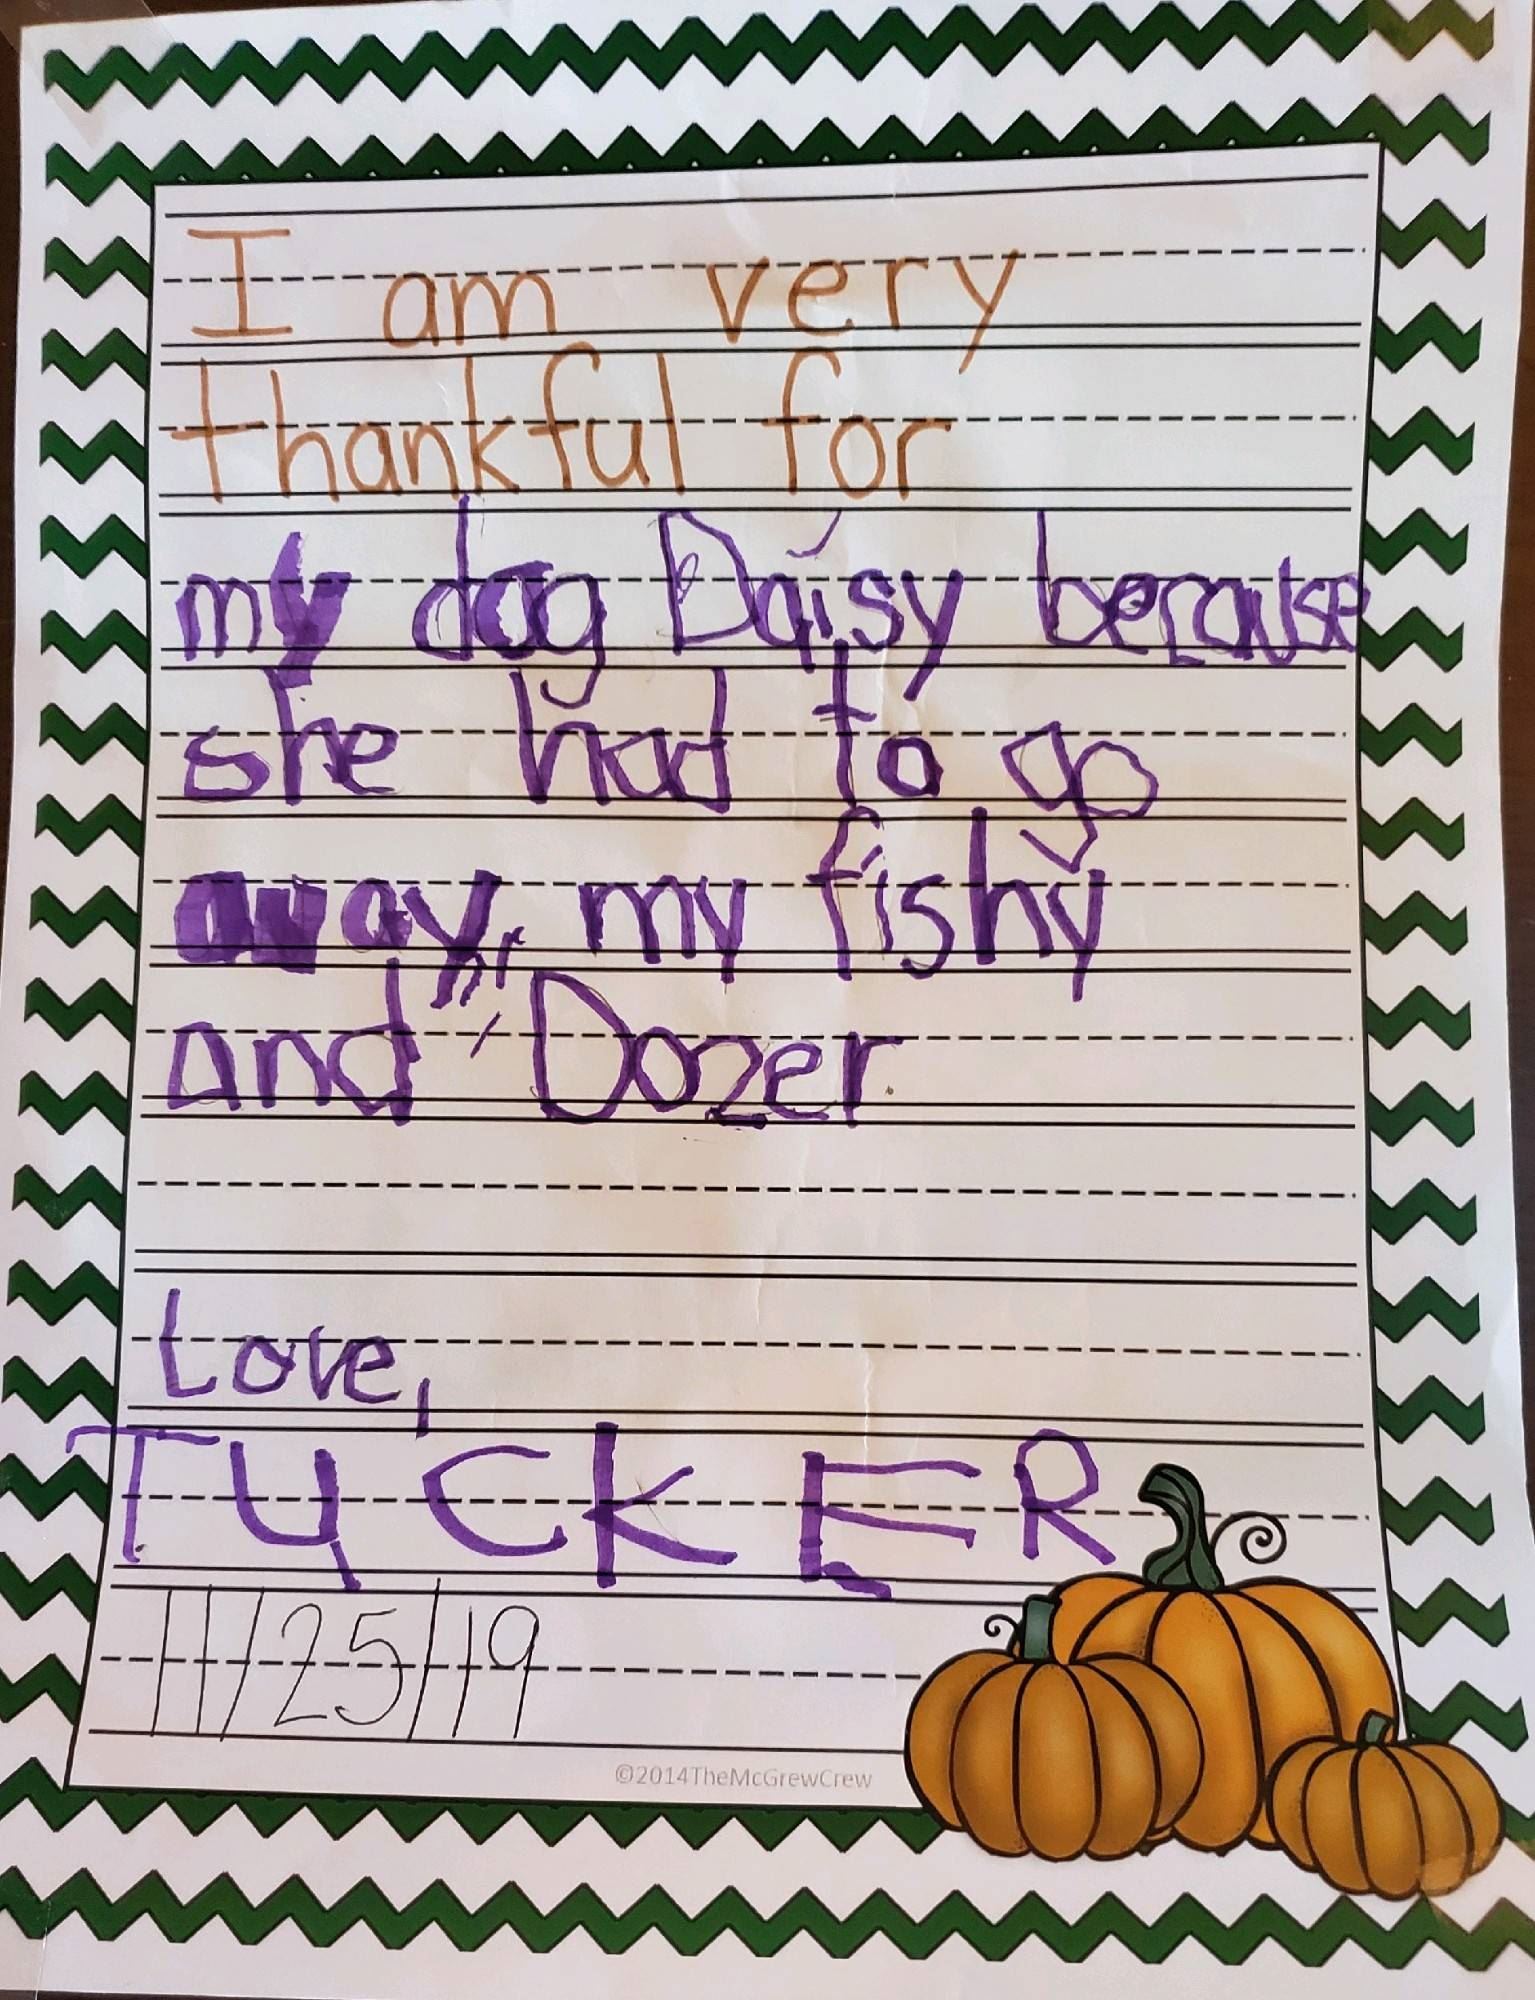 I am very
thankful for
my dog Daisy because
she had to go
away, my fishy
and Dozer.
Love,
TUCKER
11/25/19
©2014TheMcGrewCrew